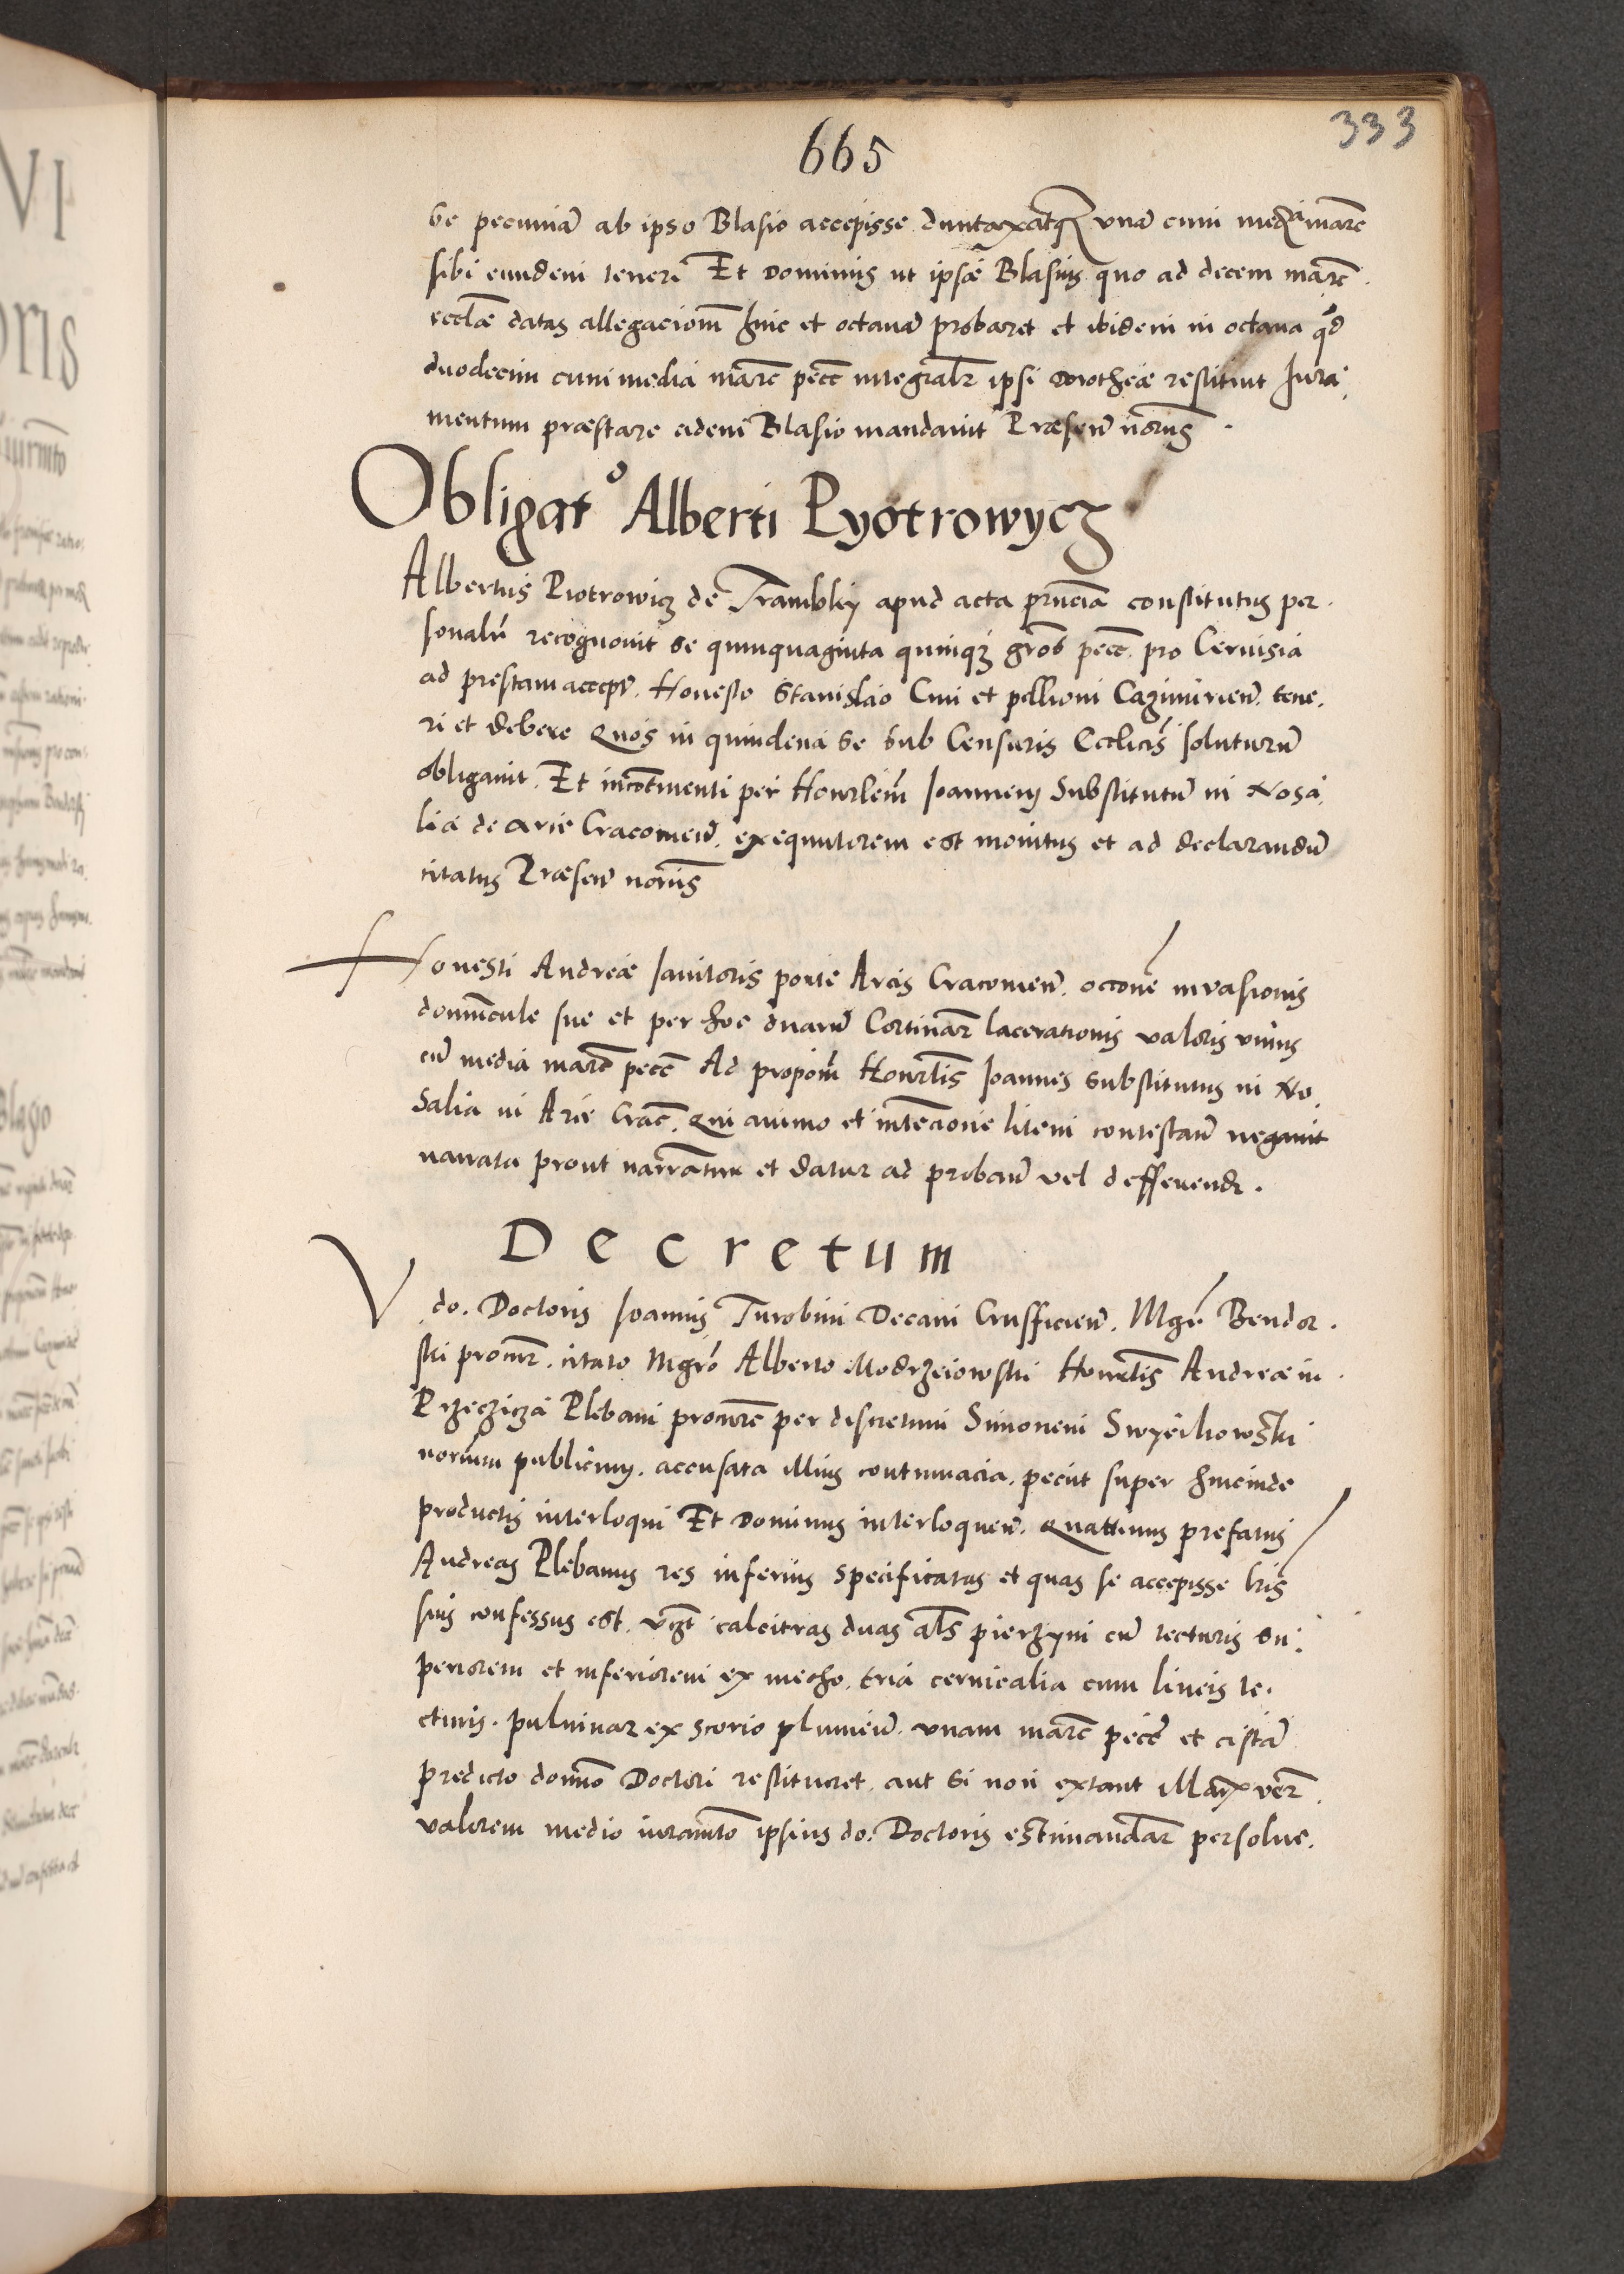 333
665
se pecuniā ab ipso Blasio accepisse duntaxatqꝫ unā cum media marc̄
sibi eundem teneri Et Dominus ut ipse Blasius quo ad decem marc̄
eccl̄ae datas allegacionem hinc et octavā probaret et ibidem in octava qd̄
duodecim cum media marc̄ pecc̄ integral̄r ipsi Dorotheae restituit Jura,
mentum praestare eidem Blasio mandavit Praesen̄ notariis.
Obligatᵒ Alberti Pyotrowycz
Albertus Piotrowicz de Trambky apud acta pn̄ciā constitutus per.
sonalr̄ recognovit se quinquaginta quinqꝫ gros̄ pecc̄. pro Cervisia
ad prestam accept̄. Honesto Stanislao Civi et pellioni Cazimirien̄. tene,
ri et debere Quos in quindena se sub Censuris Eccl̄icis soluturū
obligavit. Et incontinenti per Honorl̄em Joannem Substitutū in Xosa,
lia de arce Cracovien̄. exequutorem est monitus et ad declarandū
citatus Praesen̄ notariis
Honesti Andreae Janitoris porte Arcis Cracovien̄. occōne invasionis
domuncule sue et per hoc duarū Cortinar̄ lacerationis valoris unius
cū media marc̄ pecc̄ Ad propōm̄ Honorl̄is Joannes substitutus in Xo,
salia in Arce Crac̄. Qui animo et intencione litem contestan̄ negavit
narrata prout narrantur et datur ad proban̄ vel deffenend.
Decretum
V. do. Doctoris Joannis Turobini Decani Crusfficien̄. Mgr̄ Bendor.
ski procur̄. citato Mgrō Alberto Modrzeiowski Honorl̄is Andreae in
Przeczicza Plebani procurē per discretum Simonem Swyeihowski
norium publicum. accusata illius contumacia. peciit super hincinde
productis interloqui Et Dominus interloquen̄. Quattinus prefatus
Andreas Plebanus res inferius specificatas et quas se accepisse lris̄
suis confessus est. vꝫt calcitras duas als̄ pierzyni cū tecturis su:
periorem et inferiorem ex mecho. tria cervicalia cum lineis te.
cturis. pulvinar ex scorio plumeū. unam marc̄ pecc̄ et cistā
predicto domino Doctori restitueret. aut si non extant illarꝫ ver̄.
valorem medio iuramto ipsius do. Doctoris estimandar̄ persolve.